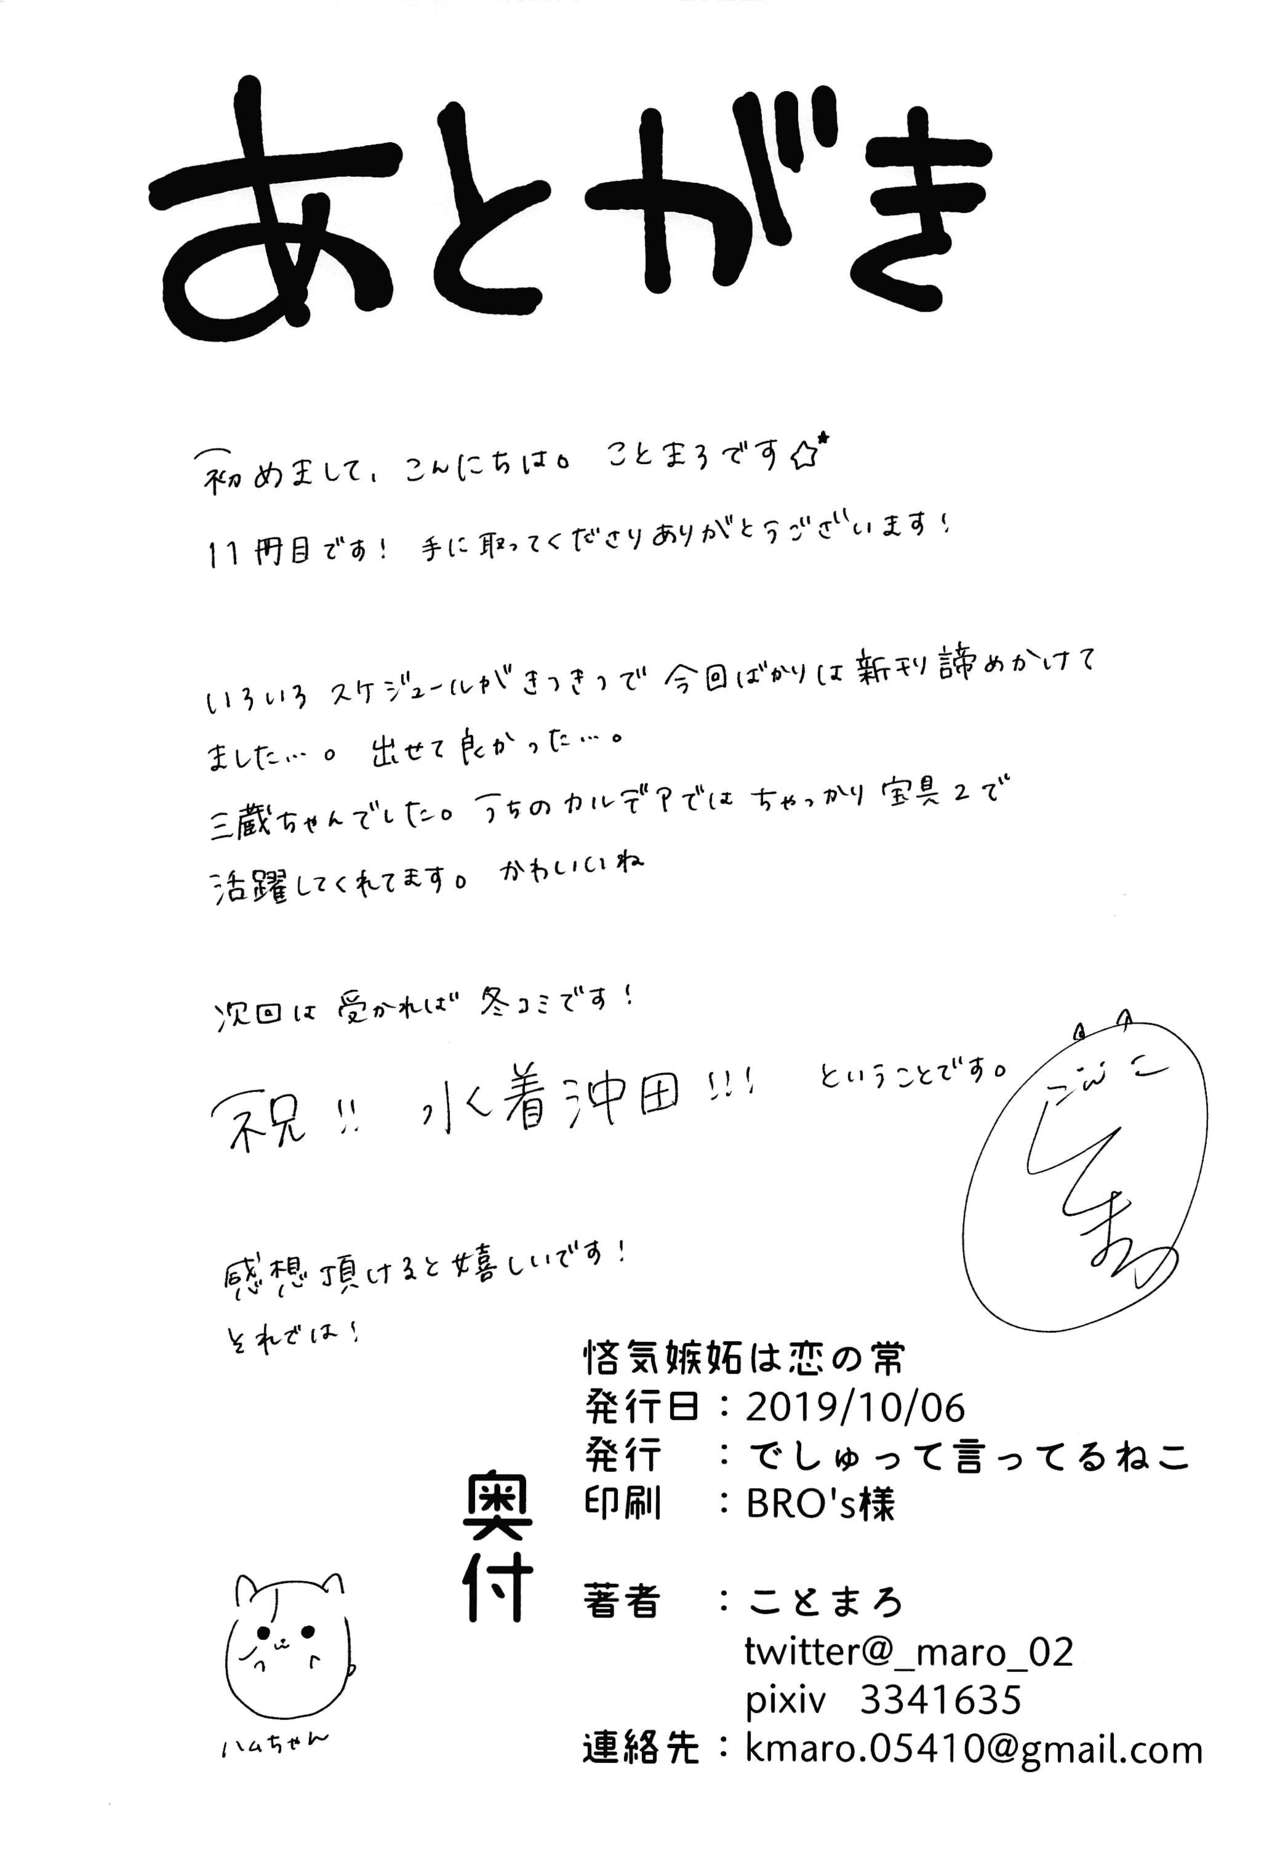 あとがき
初めまして、こんにちは。 ことまろです☆★
11冊目です! 手に取ってくださりありがとうございます!
いろいろスケジュールがきつきつで今回ばかりは新刊諦めかけて
ました…。 出せて良かった…。
三蔵ちゃんでした。うちのカルデアではちゃっかり宝具2で
活躍してくれてます。かわいいね
次回は受かれば冬コミです!
祝!! 水着沖田!!! ということです。
感想頂けると嬉しいです!
それでは!
ことまろ
ハムちゃん
奥付
悋気嫉妬は恋の常
発行日:2019/10/06
発行 :でしゅって言ってるねこ
印刷 :BRO's様
著者 :ことまろ
twitter@_maro_02
pixiv 3341635
連絡先:kmaro.05410@gmail.com